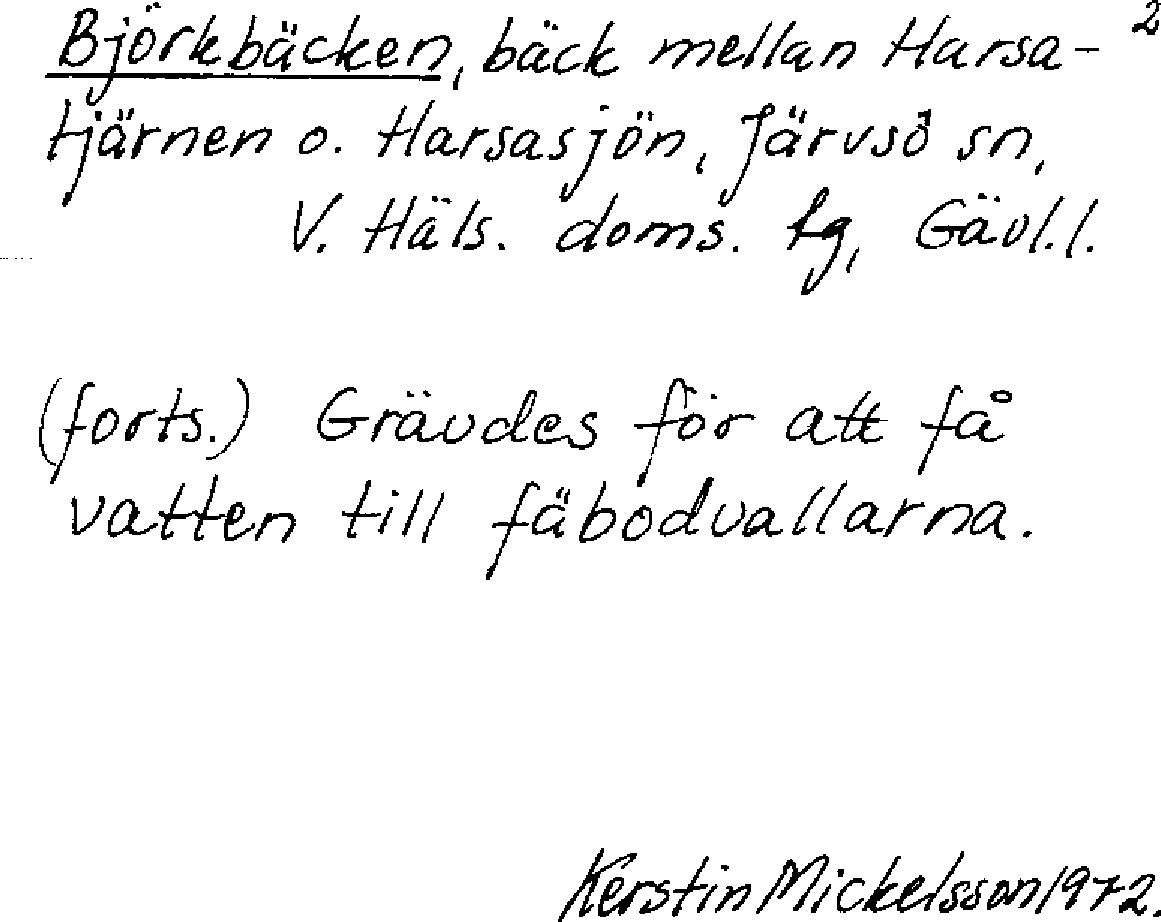 Björkbäcken, bäck mellan Harsa- 2
tjärnen o. Harsasjön, Järvsö sn,
V. Häls. doms. tg, Gävl.l.
(forts.) Grävdes för att få
vatten till fäbodvallarna.
Kerstin Mickelsson 1972.